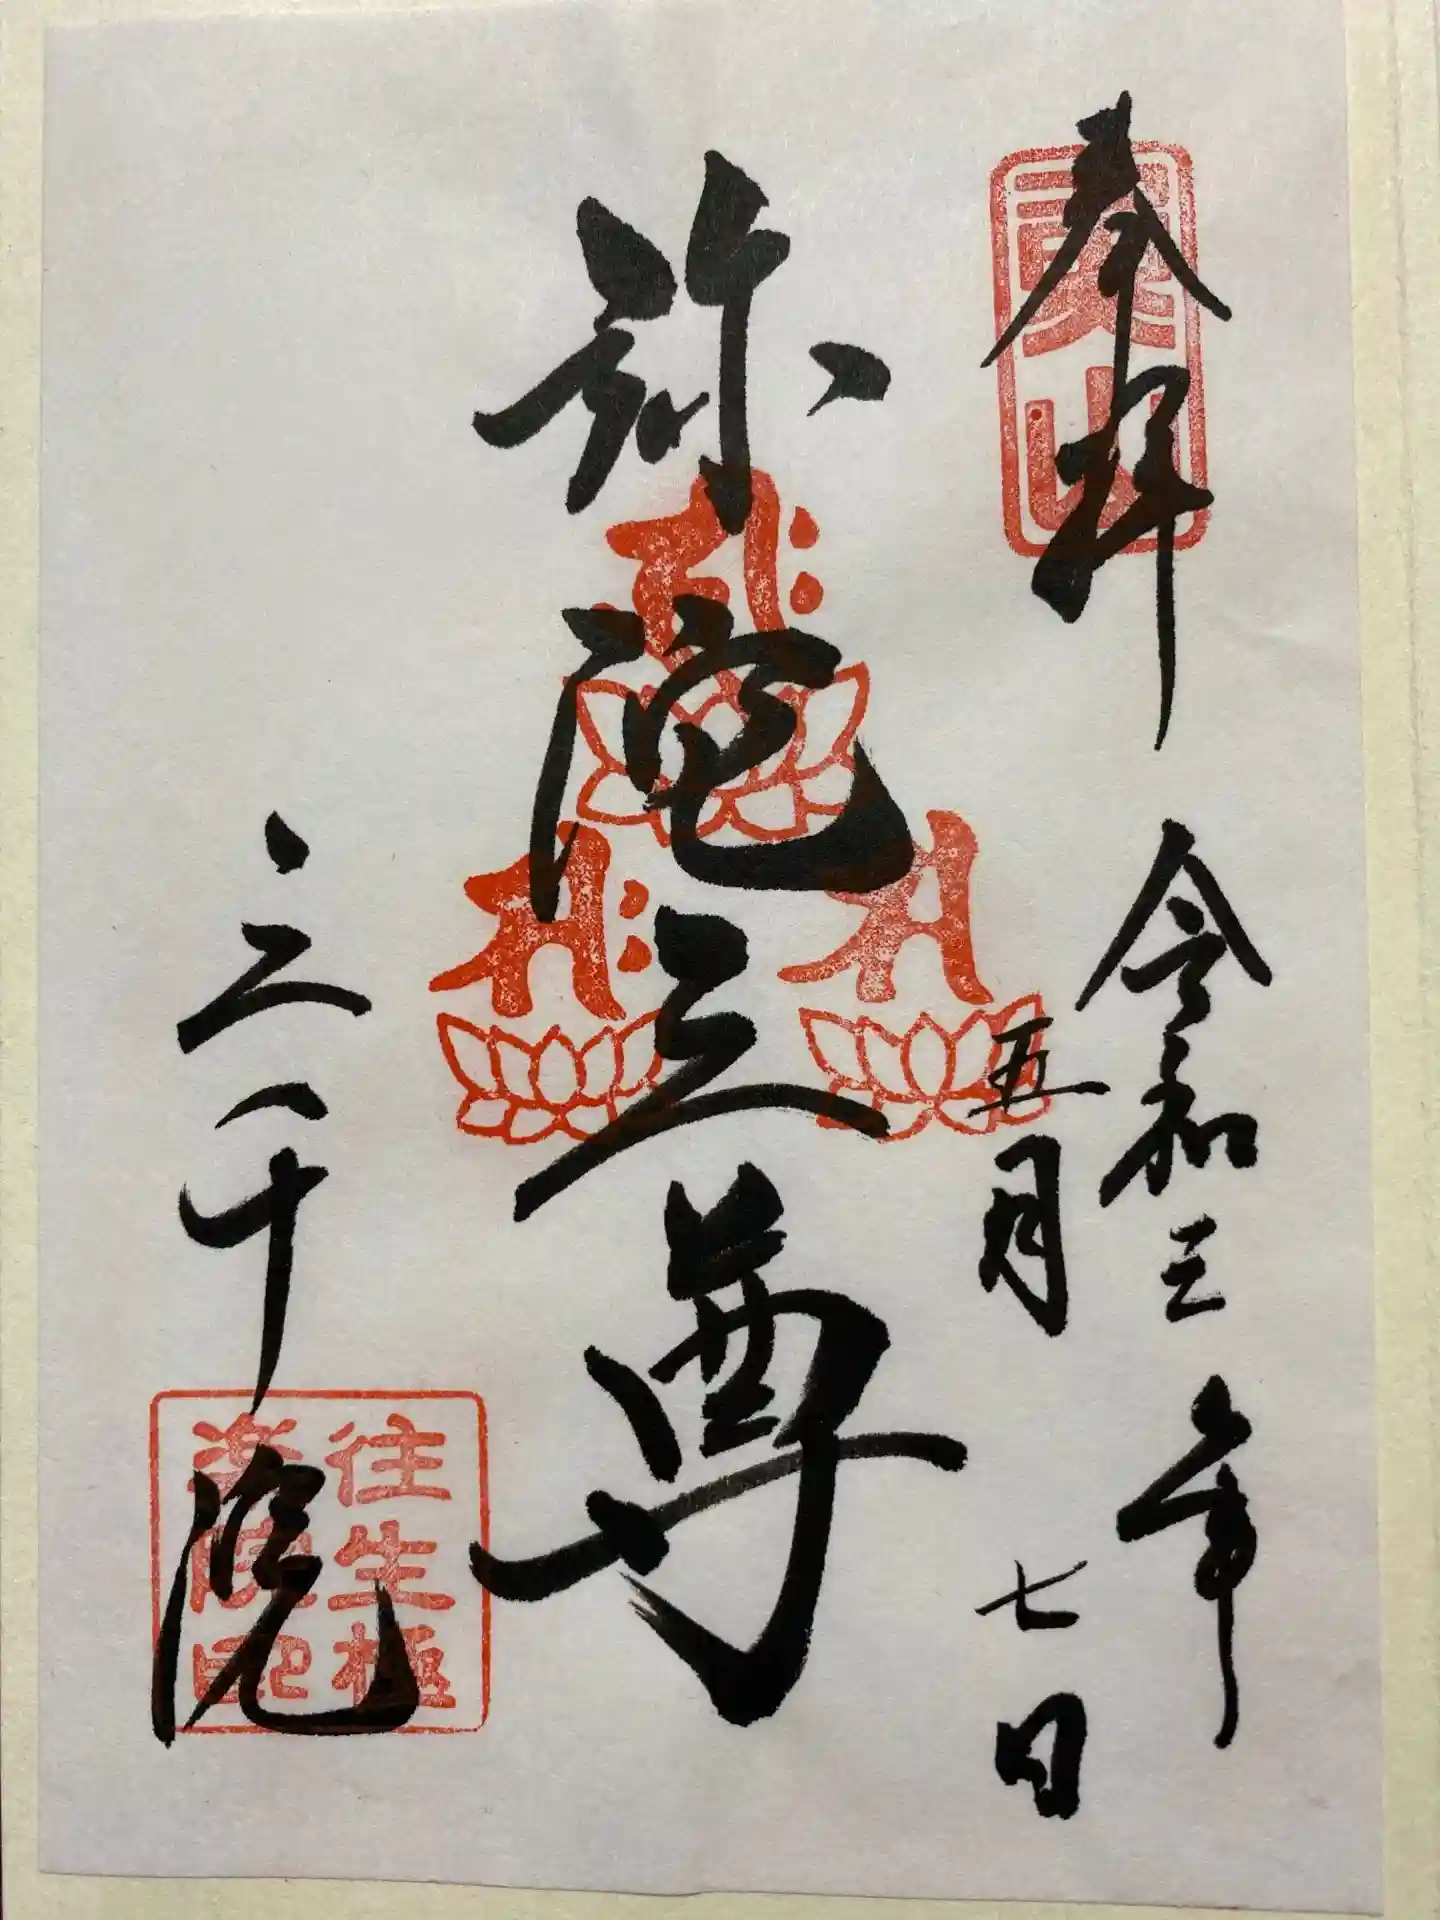 奉拝
令和三年
五月七日
弥陀三尊
三千院
魚山
往生極
楽院印